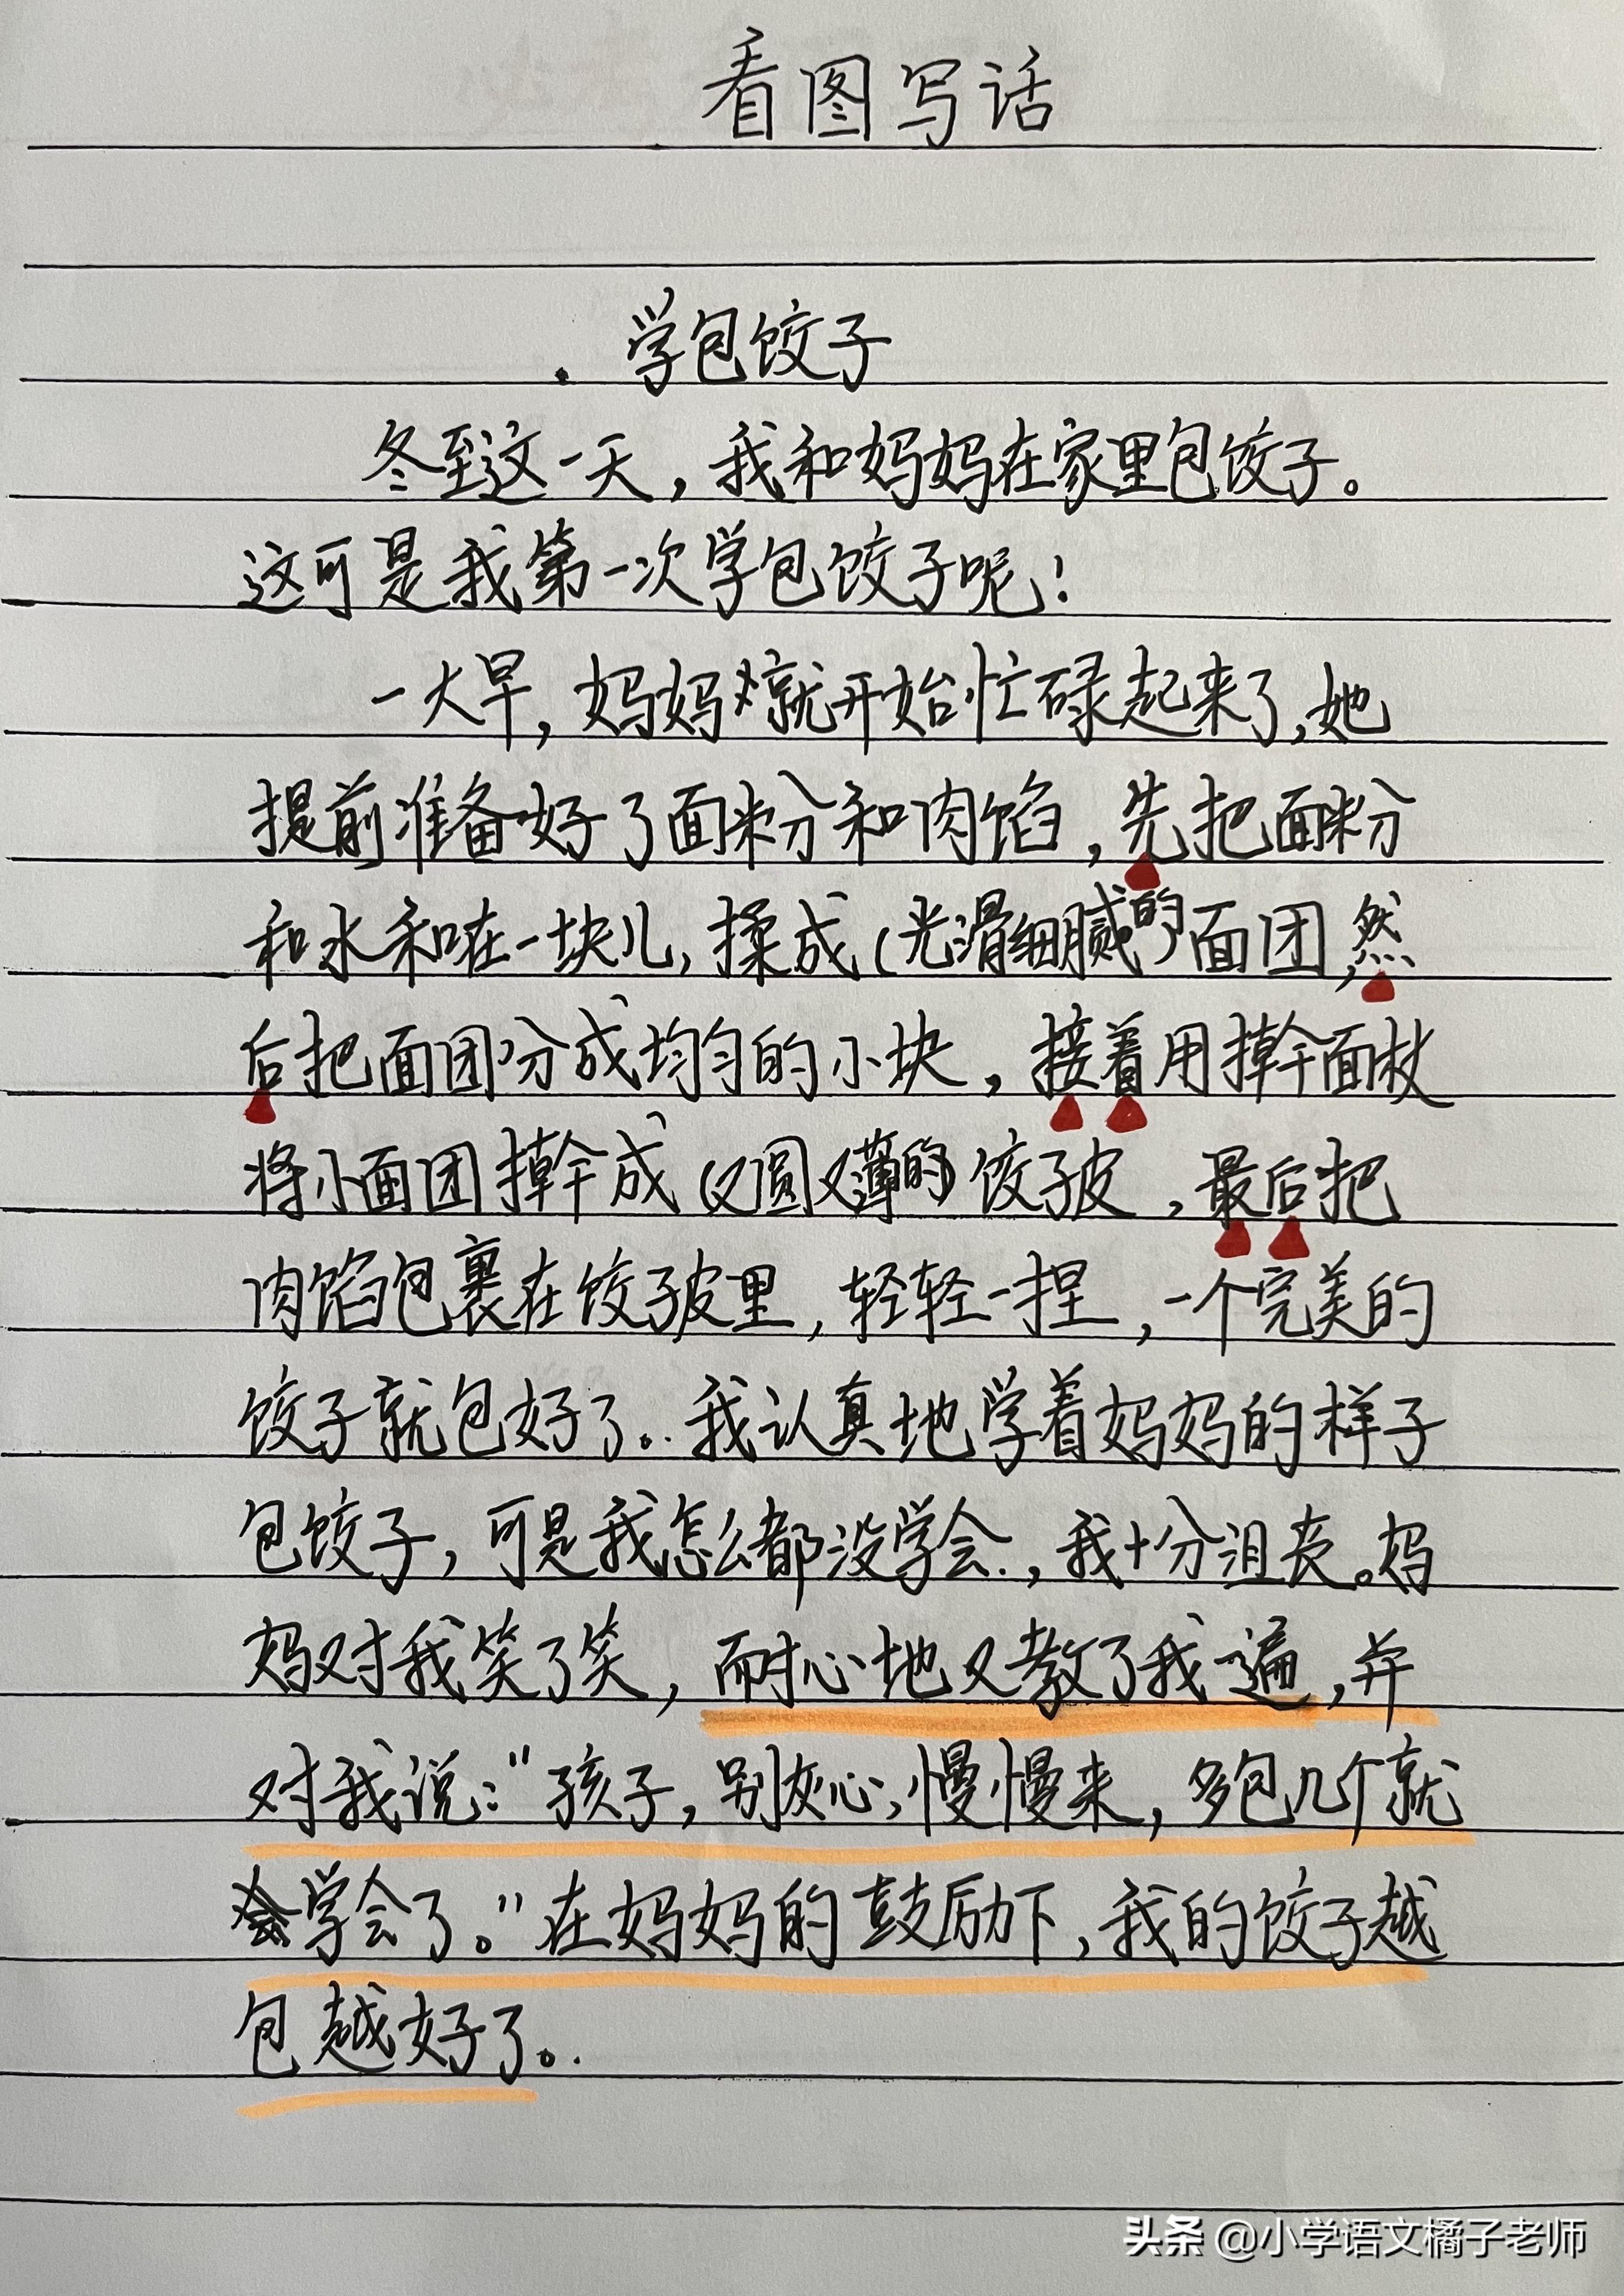 看图写话
学包饺子
冬至这一天，我和妈妈在家里包饺子。
这可是我第一次学包饺子呢！
一大早，妈妈就开始忙碌起来了，她
提前准备好了面粉和肉馅，先把面粉
和水和在一块儿，揉成(光滑细腻的)面团，然
后把面团分成均匀的小块，接着用擀面杖
将小面团擀成(又圆又薄的)饺子皮，最后把
肉馅包裹在饺子皮里，轻轻一捏，一个完美的
饺子就包好了。我认真地学着妈妈的样子
包饺子，可是我怎么都没学会，我十分沮丧。妈
妈对我笑了笑，耐心地又教了我一遍，并
对我说："孩子，别灰心，慢慢来，多包几个就
会学会了。"在妈妈的鼓励下，我的饺子越
包越好了。
头条 @小学语文橘子老师